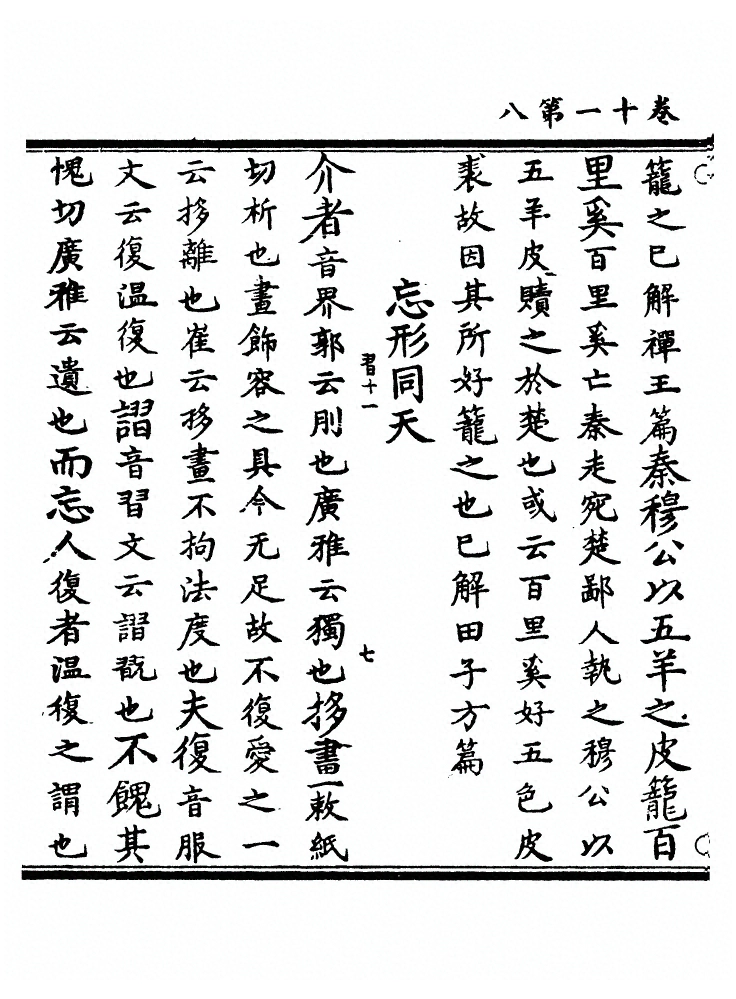 卷十一第八
籠之已解禪王篇秦穆公以五羊之皮籠百
里奚百里奚亡秦走宛楚鄙人執之穆公以
五羊皮贖之於楚也或云百里奚好五色皮
裘故因其所好籠之也已解田子方篇
忘形同天
習十一
七
介者音界郭云刖也廣雅云獨也拸畫一敕紙
切析也畫飾容之具今无足故不復愛之一
云拸離也崔云移畫不拘法度也夫復音服
文云復温復也謵音習文云謵翫也不餽其
愧切廣雅云遺也而忘人復者温復之謂也